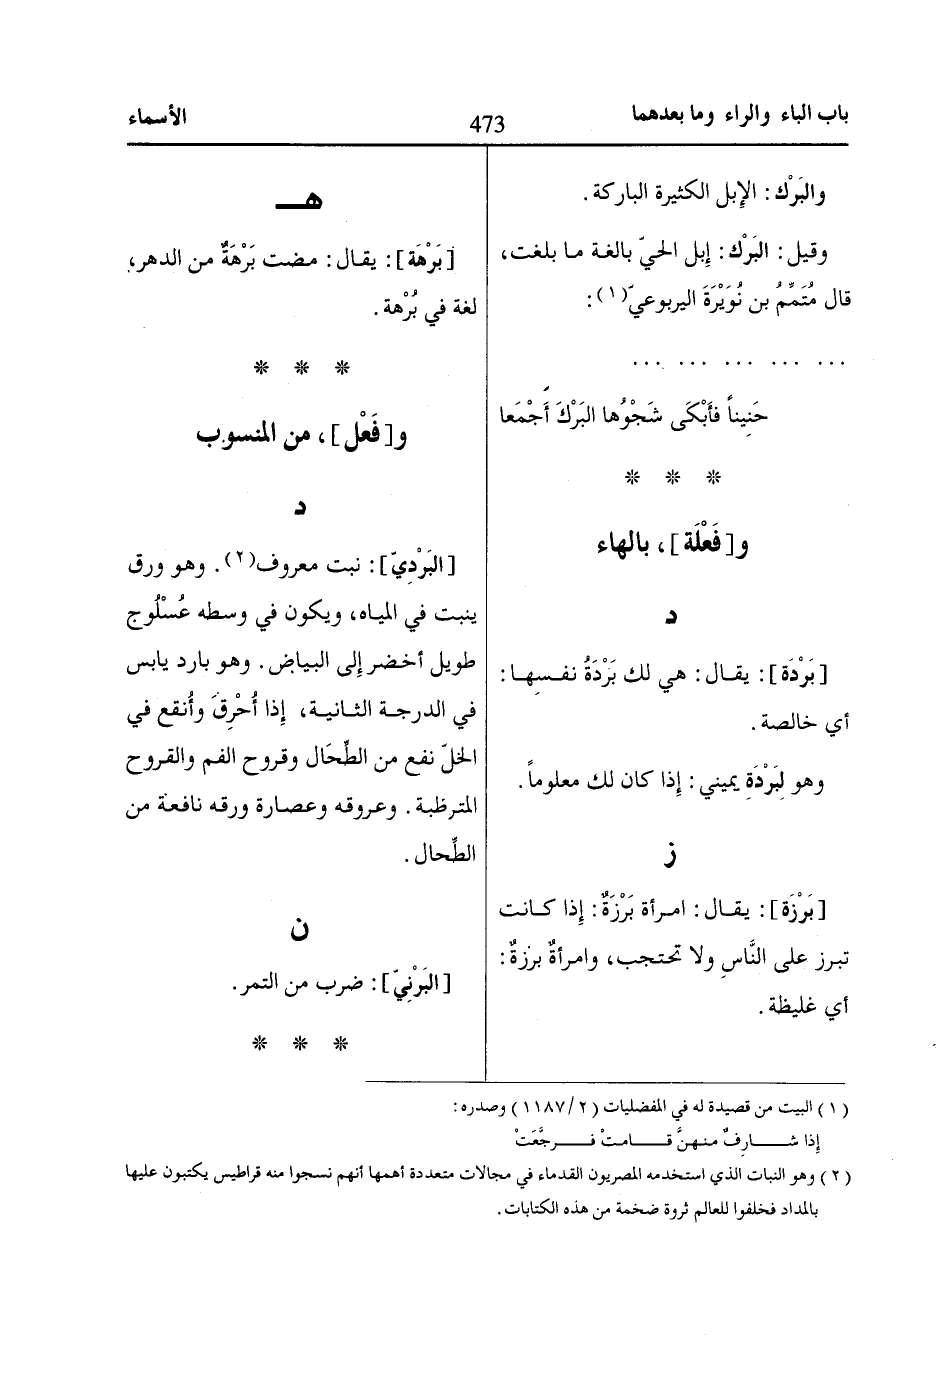 باب الباء والراء وما بعدهما
473
الأسماء
والبَرْك: الإبل الكثيرة الباركة.
وقيل: البَرْك: إبل الحيّ بالغة ما بلغت،
قال مُتَمِّمُ بن نُوَيْرَةَ اليربوعيّ(١):
... ... ... ... ...
حَنِيناً فأَبْكَى شَجْوُها البَرْكَ أَجْمَعا
* * *
و[فَعْلَة]، بالهاء
د
[بَرْدَة]: يقال: هي لك بَرْدَةُ نفسِها:
أي خالصة.
وهو لِبَرْدَةِ يميني: إذا كان لك معلوماً.
ز
[بَرْزَة]: يقال: امرأة بَرْزَةٌ: إذا كانت
تبرز على النَّاسِ ولا تحتجب، وامرأةٌ برزةٌ:
أي غليظة.
هـ
[بَرْهَة]: يقال: مضت بَرْهَةٌ من الدهر،
لغة في بُرْهة.
* * *
و[فَعْل]، من المنسوب
د
[البَرْديّ]: نبت معروف(٢). وهو ورق
ينبت في المياه، ويكون في وسطه عُسْلُوج
طويل أخضر إلى البياض. وهو بارد يابس
في الدرجة الثانية، إذا أُحْرِقَ وأُنقع في
الخلّ نفع من الطِّحَال وقروح الفم والقروح
المترظبة. وعروقه وعصارة ورقه نافعة من
الطِّحال.
ن
[البَرْنيّ]: ضرب من التمر.
* * *
(١) البيت من قصيدة له في المفضليات (٢/١١٨٧) وصدره:
إذا شـــارفٌ منهنَّ قـــامتْ فـــرجَّعَتْ
(٢) وهو النبات الذي استخدمه المصريون القدماء في مجالات متعددة أهمها أنهم نسجوا منه قراطيس يكتبون عليها
بالمداد فخلفوا للعالم ثروة ضخمة من هذه الكتابات.